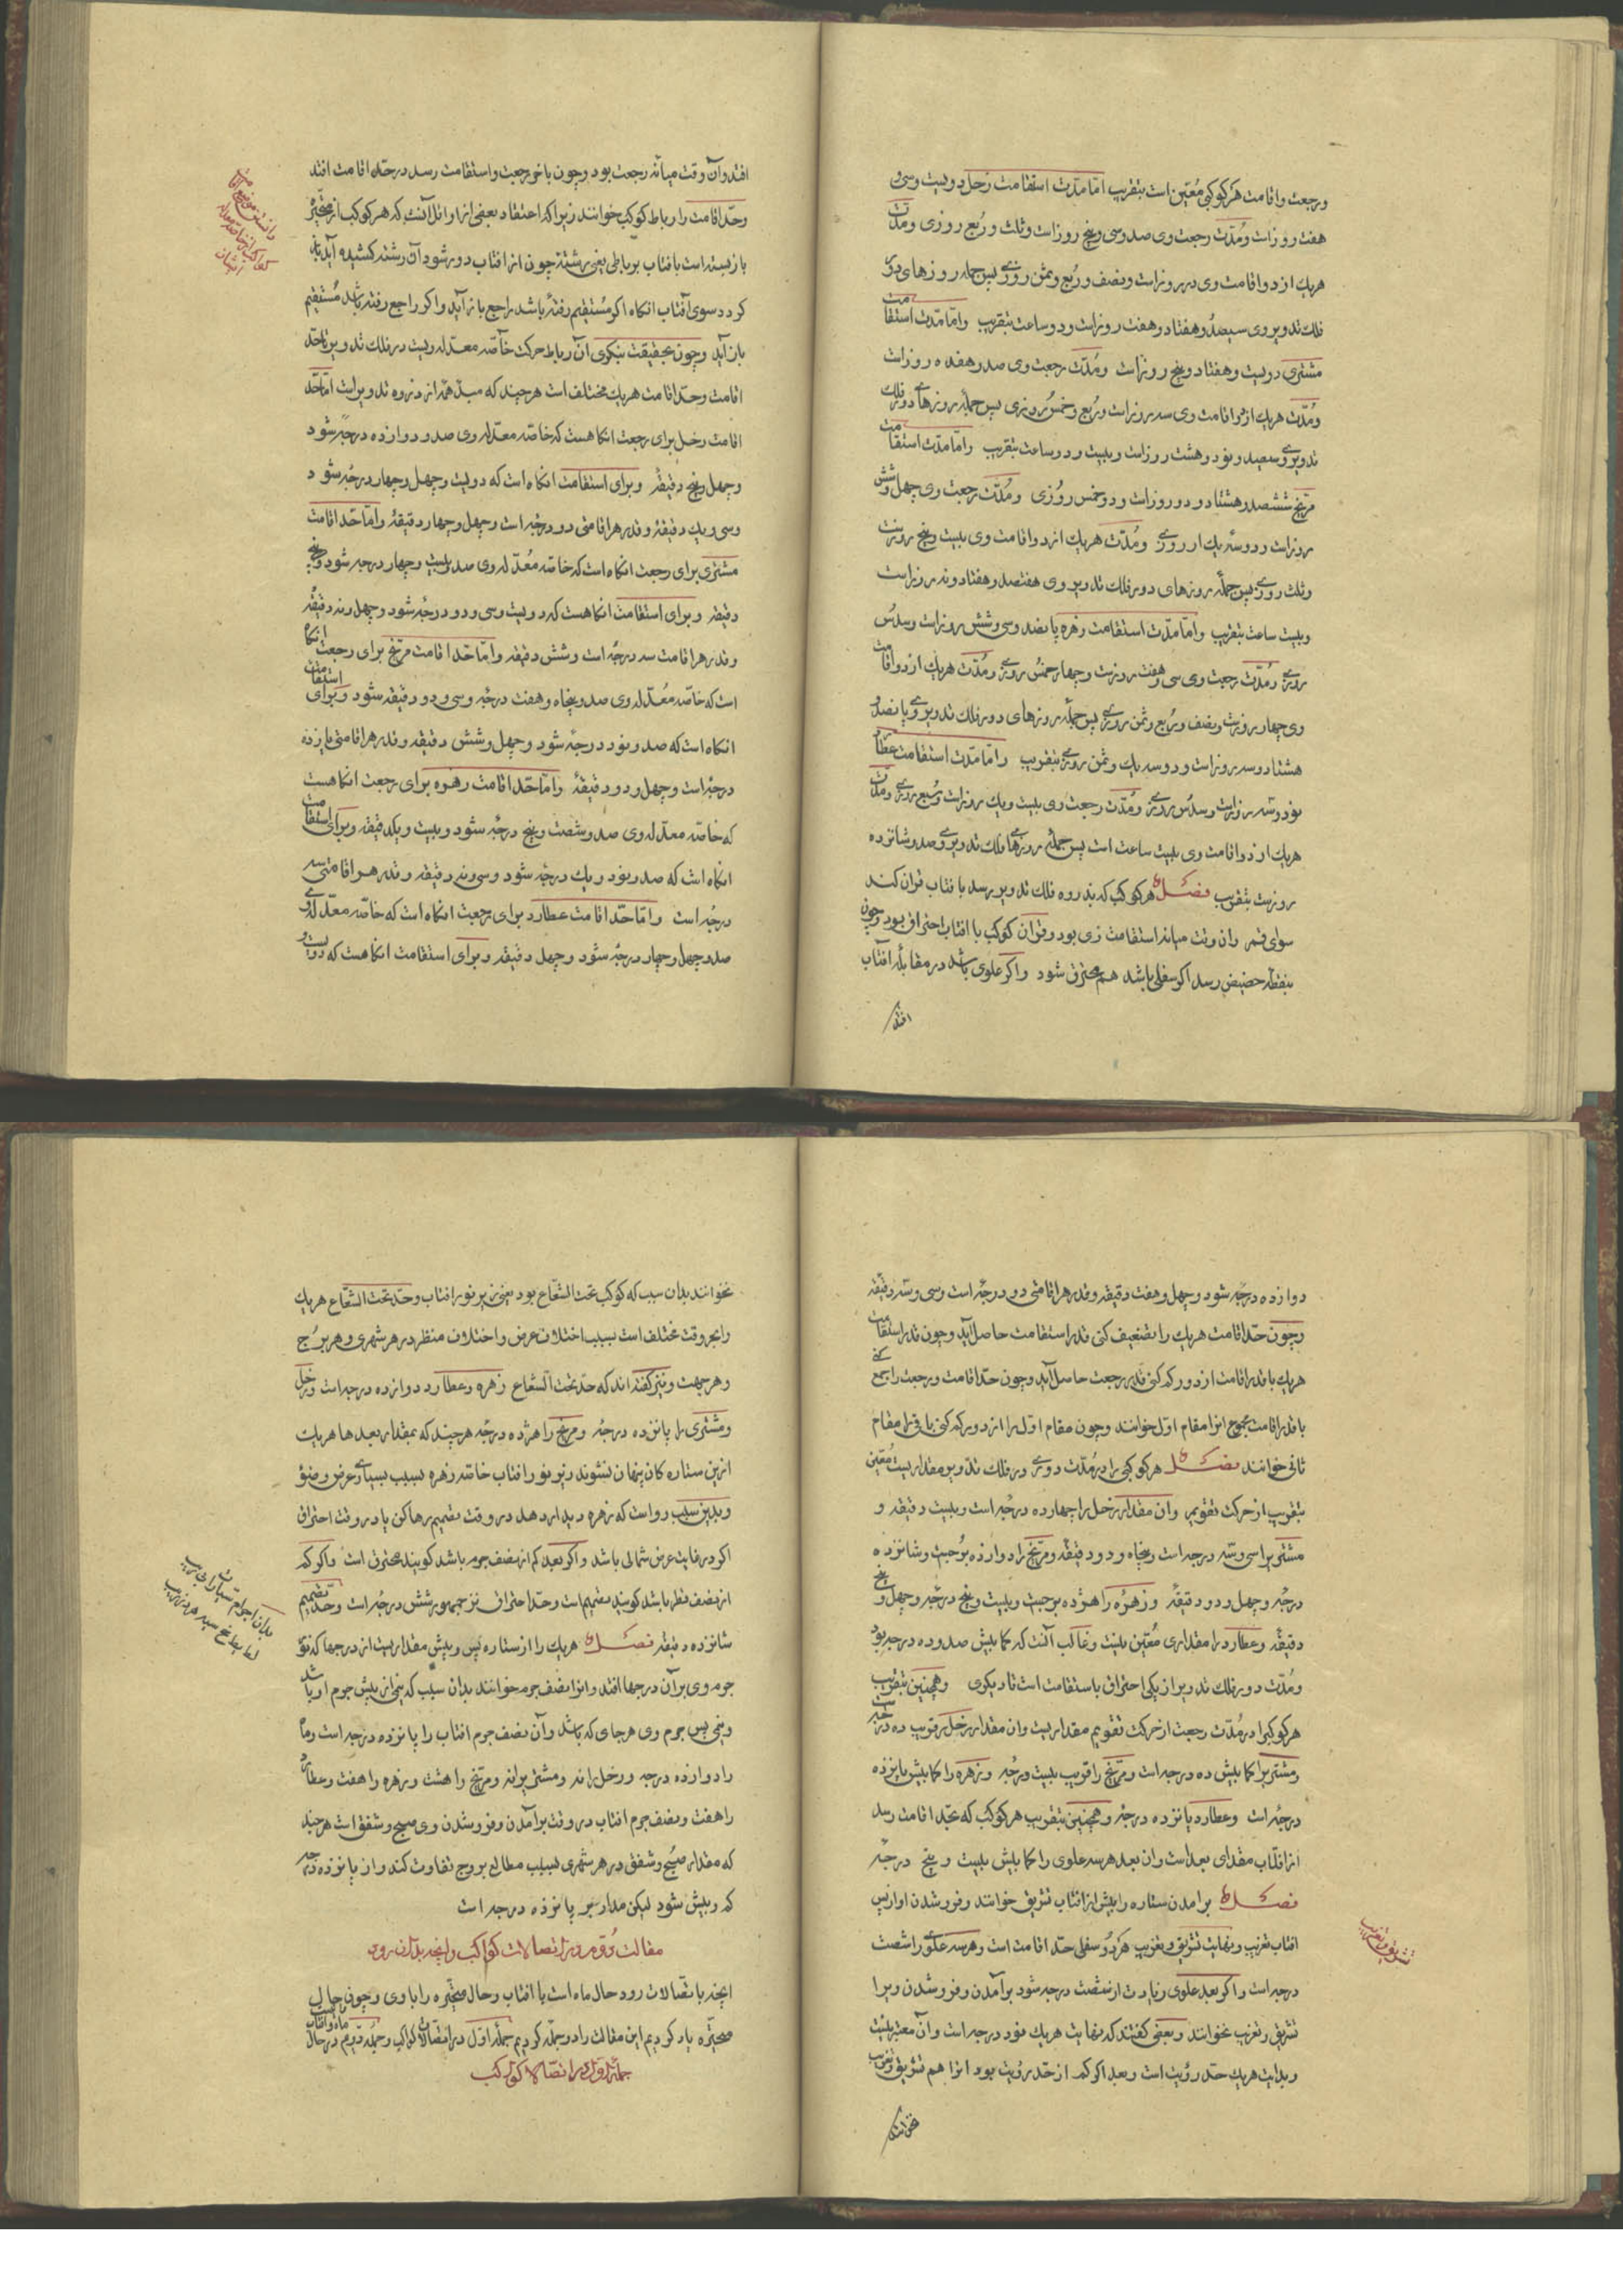 ورجعت واقامت هر کوکبی مُعیّن است بتقریب امّا مدّت استقامت زحل دویست وسی و
هفت روزاست ومُدّت رجعت وی صد وسی وپنج روزاست وثلث ورُبع روزی ومدّت
هریك از دواقامت وی دو روزاست ونصف ورُبع وثمن روزی پس جمله روزهای دور
فلك تدویر وی سیصد وهفتاد وهفت روزاست ودو ساعت بتقریب وامّا مدّت استقامت
مشتری دویست وهفتاد وپنج روزاست ومُدّت رجعت وی صد وهفده روزاست
ومُدّت هریك از دواقامت وی سه روزاست ورُبع وخمس روزی پس جمله روزهای دور فلك
تدویر وی سیصد ونود وهشت روزاست وبیست ودو ساعت بتقریب وامّا مدّت استقامت
مرّیخ ششصد وهشتاد ودو روزاست ودو خمس روزی ومُدّت رجعت وی چهل وشش
روزاست ودو سُه یك از روزی ومُدّت هریك از دواقامت وی بیست وپنج روزست
وثلث روزی پس جمله روزهای دور فلك تدویر وی هفتصد وهفتاد ونه روزاست
وبیست ساعت بتقریب وامّا مدّت استقامت زهره پانصد وسی وشش روزاست وسدُس
روزی ومُدّت رجعت وی سی وهفت روزست وچهار خمس روزی ومُدّت هریك از دواقامت
وی چهار روزست ونصف ورُبع وثمن روزی پس جمله روزهای دور فلك تدویر وی پانصد و
هشتاد وسه روزاست ودو سه یك وثمن روزی بتقریب وامّا مدّت استقامت عطارد
نود وسه روزاست وسدُس روزی ومُدّت رجعت وی بیست ویك روزاست ورُبع روزی ومدّت
هریك از دواقامت وی بیست ساعت است پس جمله روزهای فلك تدویر وی صد وشانزده
روزست بتقریب فصل هر کوکب که بذروه فلك تدویر رسد بافتاب قران کند
سوای قمر وان وقت میانه استقامت وی بود وقران کوکب با افتاب احتراق بود وچون
بنقطه حضیض رسد اکر سفلی باشد هم محترق شود واکر علوی باشد در مقابله افتاب
افتد
افتد وآن وقت میانه رجعت بود وچون باخر رجعت واستقامت رسد درحدّ اقامت افتد
وحدّ اقامت را رباط کوکب خوانند زیراکه اعتقاد بعضی از اوائل آنست که هر کوکب از متحیّره
بازبسته است بافتاب برباطی یعنی برشته چون از افتاب دور شود آن رشته کشیده آید باز
کردد سوی آفتاب انکاه اکر مُستقیم رفته باشد راجع باز آید واکر راجع رفته باشد مُستقیم
باز آید وچون بحقیقت بنکری آن رباط حرکت خاصّه معدّله ویست در فلك تدویر تا حدّ
اقامت وحدّ اقامت هریك مختلف است هرچند که مبدأ همه از ذروه تدویر است امّا حدّ
اقامت زحل برای رجعت انکاهست که خاصّه معدّله وی صد ودوازده درجه شود
وچهل وپنج دقیقه وبرای استقامت انکاه است که دویست وچهل وچهار درجه شود
وسی ویك دقیقه وقدر هر اقامتی دو درجه است وچهل وچهار دقیقه وامّا حدّ اقامت
مشتری برای رجعت انکاه است که خاصّه مُعدّله وی صد وبیست وچهار درجه شود وپنج
دقیقه وبرای استقامت انکاهست که دویست وسی ودو درجه شود وچهل ونه دقیقه
وقدر هر اقامت سه درجه است وشش دقیقه وامّا حدّ اقامت مرّیخ برای رجعت انکاه
است که خاصّه مُعدّله وی صد وپنجاه وهفت درجه وسی ودو دقیقه شود وبرای استقامت
انکاه است که صد ونود درجه شود وچهل وشش دقیقه وقدر هر اقامتی پانزده
درجه است وچهل ودو دقیقه وامّا حدّ اقامت زهره برای رجعت انکاهست
که خاصّه معدّله وی صد وشصت وپنج درجه شود وبیست ویکدقیقه وبرای استقامت
انکاه است که صد ونود ویك درجه شود وسی ونه دقیقه وقدر هر اقامتی سه
درجه است وامّا حدّ اقامت عطارد برای رجعت انکاه است که خاصّه معدّله وی
صد وچهل وچهار درجه شود وچهل دقیقه وبرای استقامت انکاهست که دویست و
دوازده درجه شود وچهل وهفت دقیقه وقدر هر اقامتی دو درجه است وسی وسه دقیقه
وچون حدّ اقامت هریك را تضعیف کنی قدر استقامت حاصل آید وچون قدر استقامت
هریك با قدر اقامت از دور کم کنی قدر رجعت حاصل آید وچون حدّ اقامت ورجعت را جمع کنی
با قدر اقامت مجموع انرا مقام اوّل خوانند وچون مقام اوّل را از دور کم کنی باقی را مقام
ثانی خوانند فصل هر کوکبی را در مُدّت دوری در فلك تدویر مقداریست مُعیّن
بتقریب از حرکت تقویم وان مقدار زحل را چهارده درجه است وبیست دقیقه و
مشتری را سی وسه درجه است وپنجاه ودو دقیقه ومرّیخ را دوازده بُرجست وشانزده
درجه وچهل ودو دقیقه وزهره را هژده برجست وبیست وپنج درجه وچهل وپنج
دقیقه وعطارد را مقداری مُعیّن نیست وغالب آنست که کمابیش صد وده درجه بود
ومُدّت دور فلك تدویر از یکی احتراق باستقامت است تا دیکری وهمچنین بتقریب
هر کوکبرا در مُدّت رجعت از حرکت تقویم مقداریست وان مقدار زحل را قریب ده درجه است
ومشتریرا کمابیش ده درجه است ومرّیخ را قریب بیست درجه وزهره را کمابیش پانزده
درجه است وعطارد پانزده درجه وهمچنین بتقریب هر کوکب که بحدّ اقامت رسد
از افتاب مقداری بعداست وان بعد هر سه علوی را کمابیش بیست وپنج درجه
فصل برامدن ستاره را پیش از افتاب تشریق خوانند وفروشدن او از پس
افتاب تغریب ونهایت تشریق وتغریب هر دو سفلی حدّ اقامت است وهر سه علوی را شصت
درجه است واکر بعد علوی زیادت از شصت درجه شود برآمدن وفروشدن ویرا
تشریق وتغریب نخوانند وبعضی کفتند که نهایت هریك نود درجه است وآن معتبر نیست
وبدایت هریك حدّ رؤیت است وبعد اکر کم از حدّ رؤیت بود انرا هم تشریق وتغریب
نخوانند
تشریق وتغریب
نخوانند بدان سبب که کوکب تحت الشّعاع بود یعنی زیر نور افتاب وحدّ تحت الشّعاع هریك
را بهر وقت مختلف است بسبب اختلاف عرض واختلاف منظر در هر شهری وهر بُرج
وهر جهت ونیز کفته اند که حدّ تحت الشّعاع زهره وعطارد دوازده درجه است وزحل
ومشتری را پانزده درجه ومرّیخ را هژده درجه هرچند که بمقدار بعدها هریك
ازین ستارکان پنهان نشوند زیر نور افتاب خاصّه زهره بسبب بسیاری عرض وضوء
وبدین سبب رواست که زهره دیدار دهد در وقت تصمیم رها کن یا در وقت احتراق
اکر در غایت عرض شمالی باشد واکر بعد کم از نصف جرم باشد کویند محترق است واکر کم
از نصف قطر باشد کویند تصمیم است وحدّ احتراق شش درجه است وحدّ تصمیم
شانزده دقیقه فصل هریك را از ستاره پس وپیش مقداریست از درجها که نور
جرم وی برآن درجها افتد وانرا نصف جرم خوانند بدان سبب که نیمی از پیش جرم او باشد
ونیمی پس جرم وی هر جای که باشد وآن نصف جرم افتاب را پانزده درجه است وماه
را دوازده درجه وزحل را نه ومشتریرا نه ومرّیخ را هشت وزهره را هفت وعطارد
را هفت ونصف جرم افتاب در وقت برآمدن وفروشدن وی صبح وشفق است هرچند
که مقدار صُبح وشفق در هر شهری بسبب مطالع بروج تفاوت کند واز پانزده درجه
کم وبیش شود لیکن مدار بر پانزده درجه است
مقالت دُوّم در اتصالات کواکب وانچه بدان رود
انچه باتصالات رود حال ماه است با افتاب وحال متحیّره را با وی وچون حال
متحیّره یاد کردیم این مقالت را دو جمله کردیم جملهٔ اوّل در اتصالات کواکب وجملهٔ دوّم در حال ماه وافتاب
جملهٔ اوّل در اتصالات کواکب